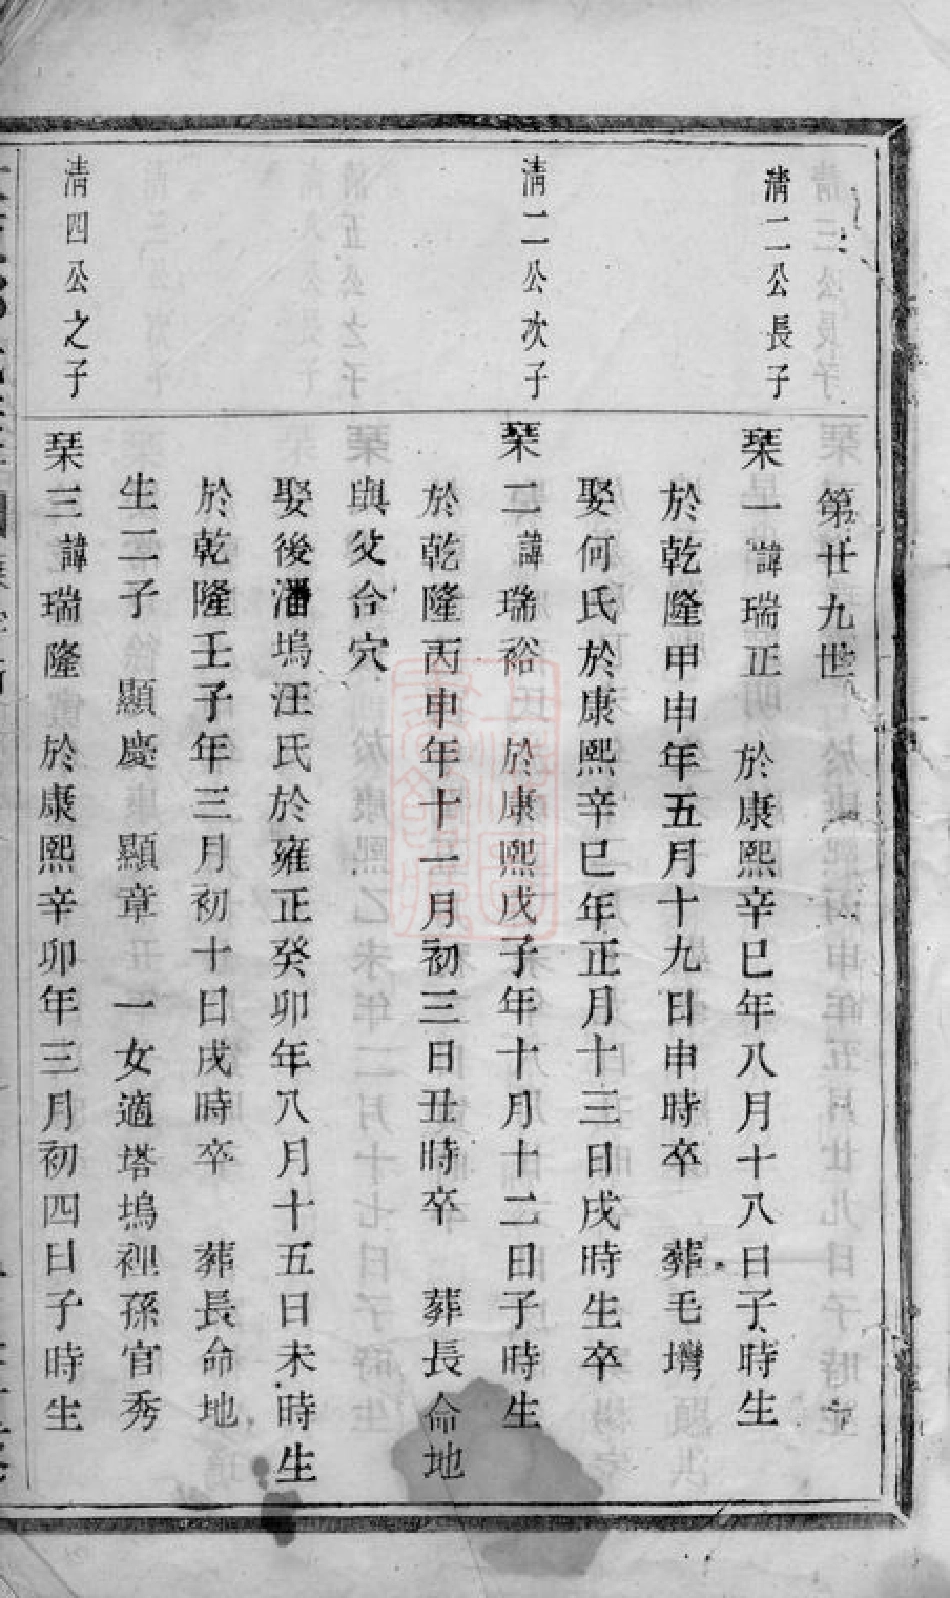 第廿九世
清二公長子
栞一諱瑞正　於康熙辛巳年八月十八日子時生
於乾隆甲申年五月十九日申時卒　葬毛灣
娶何氏於康熙辛巳年正月十三日戌時生卒
清二公次子
栞二諱瑞裕　於康熙戊子年十月十二日子時生
於乾隆丙申年十一月初三日丑時卒　葬長命地
與父合穴
娶後潘塢汪氏於雍正癸卯年八月十五日未時生
於乾隆壬子年三月初十日戌時卒　葬長命地
生二子　顯慶　顯章　一女適塔塢裡孫官秀
清四公之子
栞三諱瑞隆　於康熙辛卯年三月初四日子時生